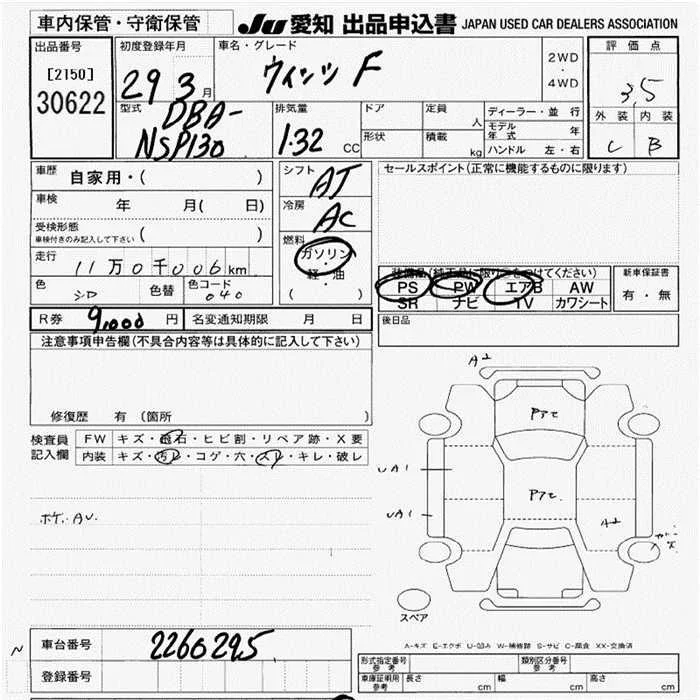 車内保管・守衛保管 JU 愛知 出品申込書 JAPAN USED CAR DEALERS ASSOCIATION
出品番号 初度登録年月 車名・グレード 評価点
[2150] 29 3月 ヴィッツ F 2WD ・ 4WD 3,5
30622
型式 DBA- 排気量 ドア 定員 人 ディーラー・並行 外装 内装
NSP130 1.32 CC 形状 積載 kg モデル年式 年 C B
ハンドル 左・右
車歴 自家用・( ) シフト AT セールスポイント(正常に機能するものに限ります)
車検 年 月( 日) 冷房 AC
受検形態 ( )
車検付きのみ記入して下さい
燃料
走行 11万0千006km ガソリン
・
軽・油
( )
装備品(純正品に限り○をつけてください) 新車保証書
色 シロ 色替 色コード 040 PS PW エアB AW 有・無
SR ナビ TV カワシート
R券 9,000円 名変通知期限 月 日 後日品
注意事項申告欄(不具合内容等は具体的に記入して下さい)
修復歴 有(箇所
検査員 FW キズ・飛石・ヒビ割・リペア跡・X要
記入欄 内装 キズ・汚レ・コゲ・穴・スレ・キレ・破レ
A2
Pアセ
UA1
Pアセ
UA1
A2
キズ
ホケ.AU.
スペア
A-キズ E-エクボ U-凹み W-補修跡 S-サビ C-腐食 XX-交換済
N
車台番号 2260295
登録番号
型式指定番号 参考 類別区分番号 参考
車庫証明用 参考 長さ cm 幅 cm 高さ cm